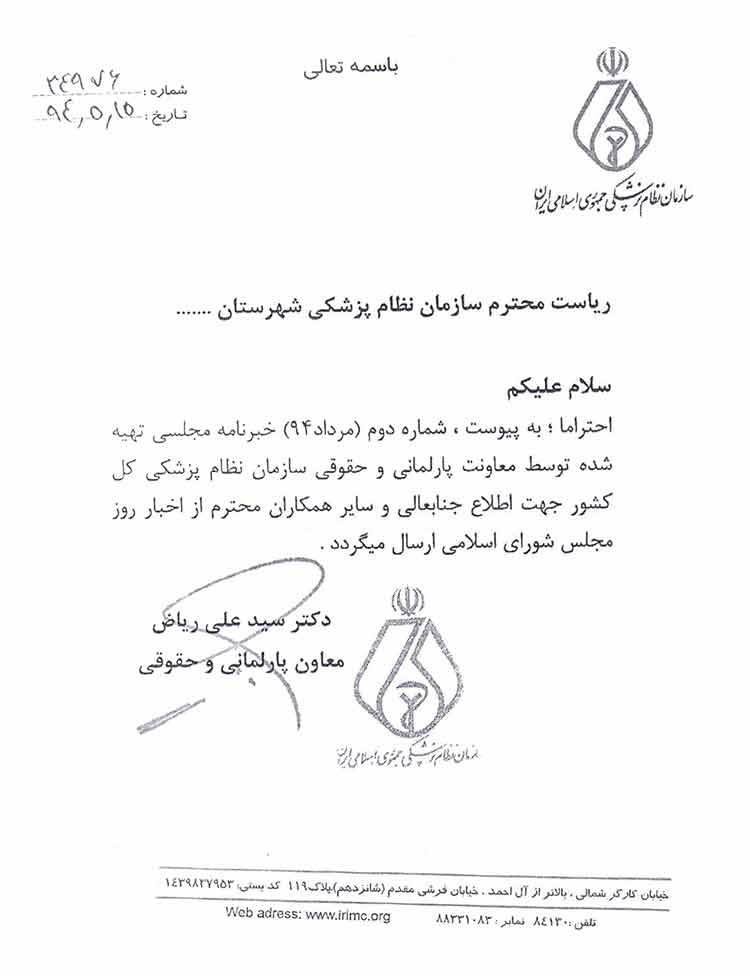 باسمه تعالی
شماره: ۳۴۹۷۶
تاریخ: ۹۴,۵,۱۵
سازمان نظام پزشکی جمهوری اسلامی ایران
ریاست محترم سازمان نظام پزشکی شهرستان .......
سلام علیکم
احتراما ؛ به پیوست ، شماره دوم (مرداد۹۴) خبرنامه مجلسی تهیه
شده توسط معاونت پارلمانی و حقوقی سازمان نظام پزشکی کل
کشور جهت اطلاع جنابعالی و سایر همکاران محترم از اخبار روز
مجلس شورای اسلامی ارسال میگردد .
دکتر سید علی ریاض
معاون پارلمانی و حقوقی
سازمان نظام پزشکی جمهوری اسلامی ایران
خیابان کارگر شمالی ، بالاتر از آل احمد ، خیابان فرشی مقدم (شانزدهم)،پلاک۱۱۹ کد پستی: ۱۴۳۹۸۳۷۹۵۳
تلفن: ۸۴۱۳۰ نمابر: ۸۸۳۳۱۰۸۳ Web adress: www.irimc.org